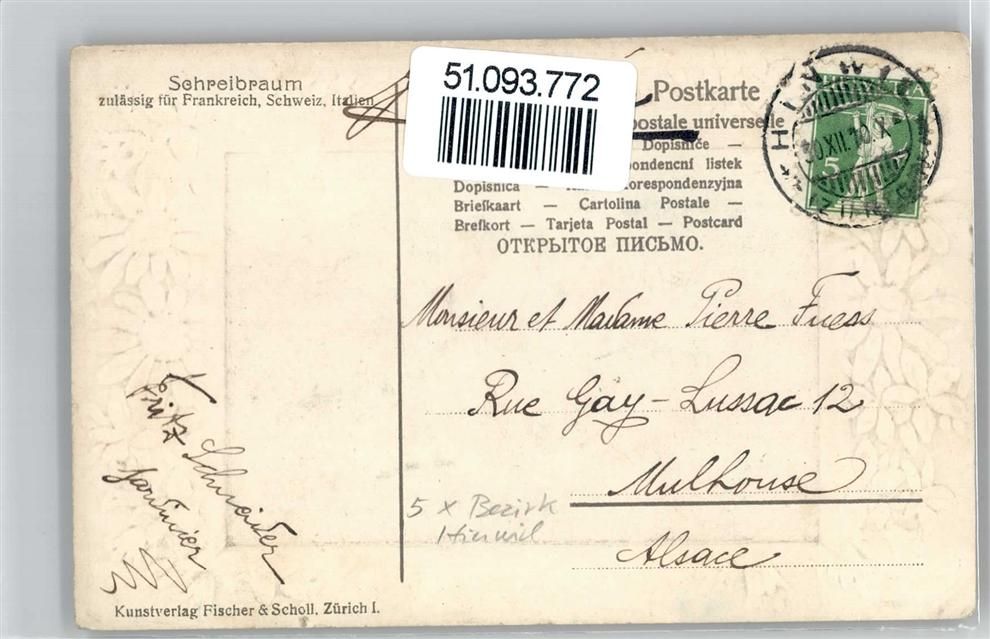 Schreibraum
zulässig für Frankreich, Schweiz, Italien
51.093.772
Postkarte
postale universelle
Dopisniče —
Dopisnica —
Briefkaart — Cartolina Postale —
Brefkort — Tarjeta Postal — Postcard
ОТКРЫТОЕ ПИСЬМО.
5
Monsieur et Madame Pierre Fuess
Rue Gay-Lussac 12
Mulhouse
Alsace
5 x Bezirk
Hinwil
Fritz Schneider
Kunstverlag Fischer & Scholl, Zürich I.